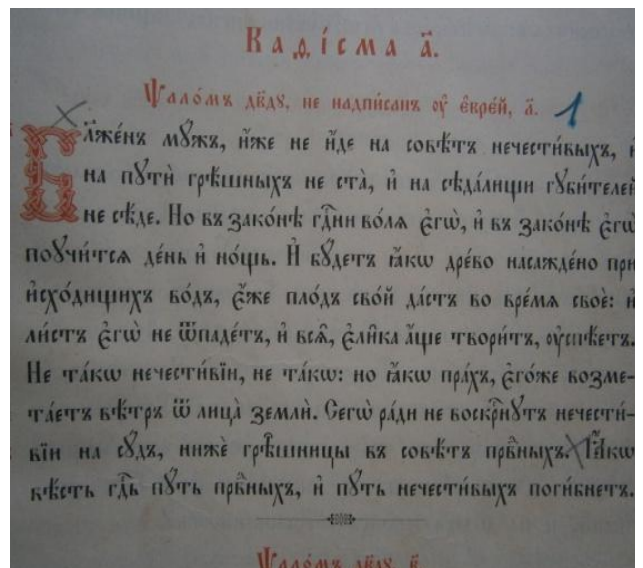 Каѳі́сма а҃.
Ѱало́мъ дв҃ду, не надпи́санъ ᲂу҆ є҆вре́й, а҃. 1
Бл҃же́нъ мꙋ́жъ, и҆́же не и҆́де на совѣ́тъ нечести́выхъ, и҆
на пꙋтѝ грѣ́шныхъ не ста̀, и҆ на сѣда́лищи гꙋби́телей
не сѣ́де. Но въ зако́нѣ гдⷭ҇ни во́лѧ є҆гѡ̀, и҆ въ зако́нѣ є҆гѡ̀
поꙋчи́тсѧ де́нь и҆ но́щь. И҆ бꙋ́детъ ꙗ҆́кѡ дре́во насажде́но при
и҆схо́дищихъ во́дъ, є҆́же пло́дъ сво́й да́стъ во вре́мѧ своѐ: и҆
ли́стъ є҆гѡ̀ не ѿпаде́тъ, и҆ всѧ̑, є҆ли̑ка а҆́ще твори́тъ, ᲂу҆спѣ́етъ.
Не та́кѡ нечести́вїи, не та́кѡ: но ꙗ҆́кѡ пра́хъ, є҆го́же возме-
та́етъ вѣ́тръ ѿ лица̀ землѝ. Сегѡ̀ ра́ди не воскрⷭ҇нꙋтъ нечести́-
вїи на сꙋ́дъ, нижѐ грѣ̑шницы въ совѣ́тъ првⷣныхъ. Ꙗ҆́кѡ
вѣ́сть гдⷭ҇ь пꙋ́ть првⷣныхъ, и҆ пꙋ́ть нечести́выхъ поги́бнетъ.
Ѱало́мъ дв҃дꙋ, в҃.